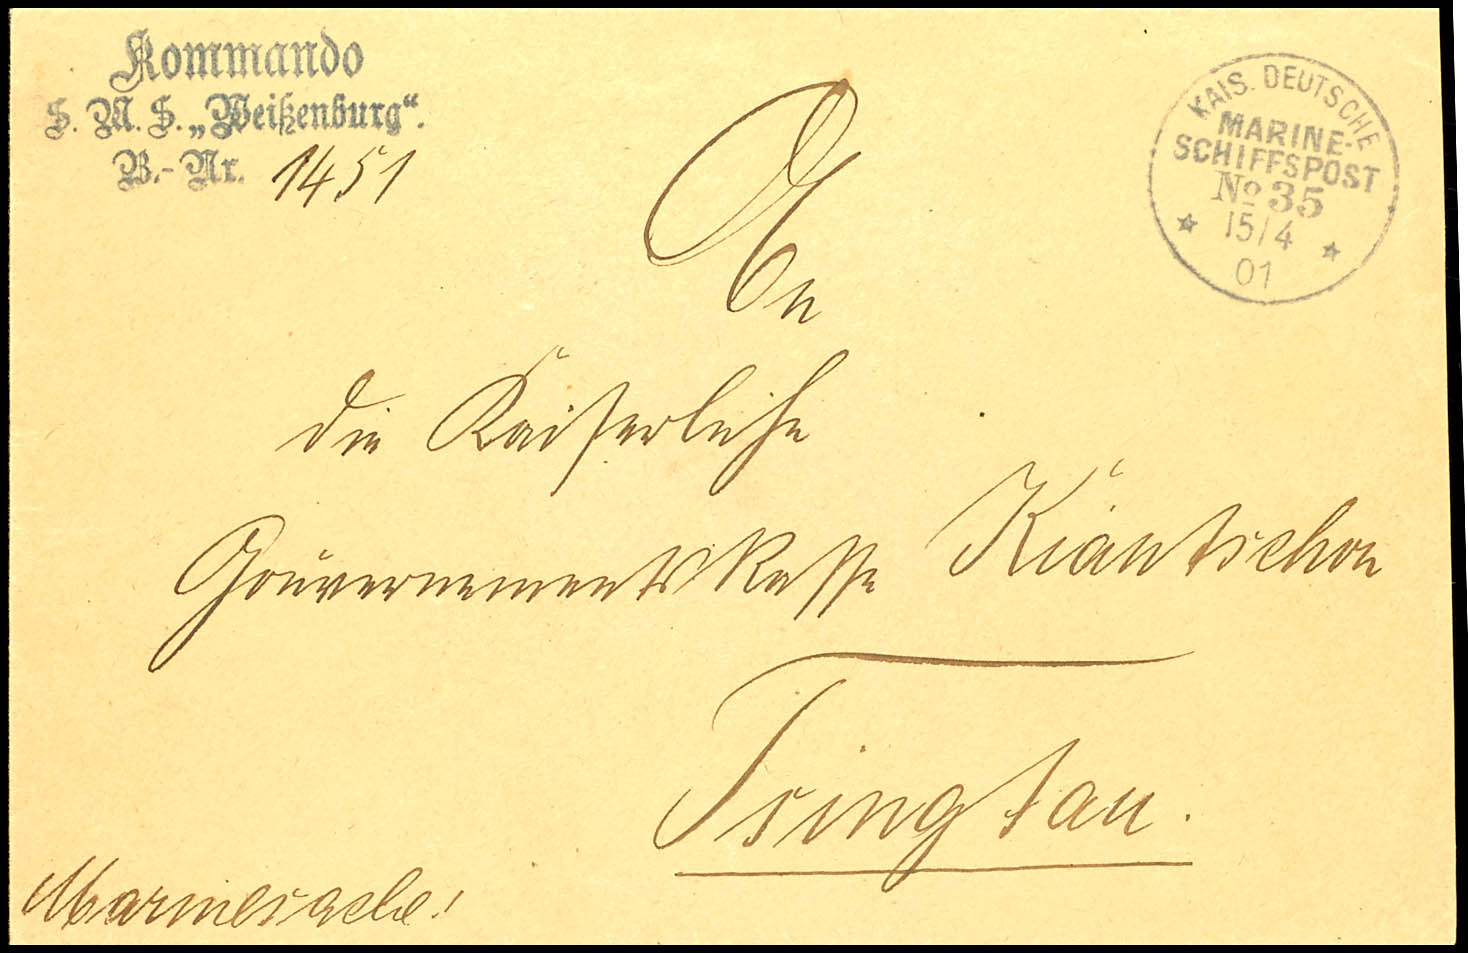 Kommando
S. M. S. „Weißenburg“.
B.-Nr. 1451
KAIS. DEUTSCHE
MARINE-
SCHIFFSPOST
No 35
15/4
01
An
die Kaiserliche
Gouvernementskasse Kiautschou
Tsingtau.
Marinesache!